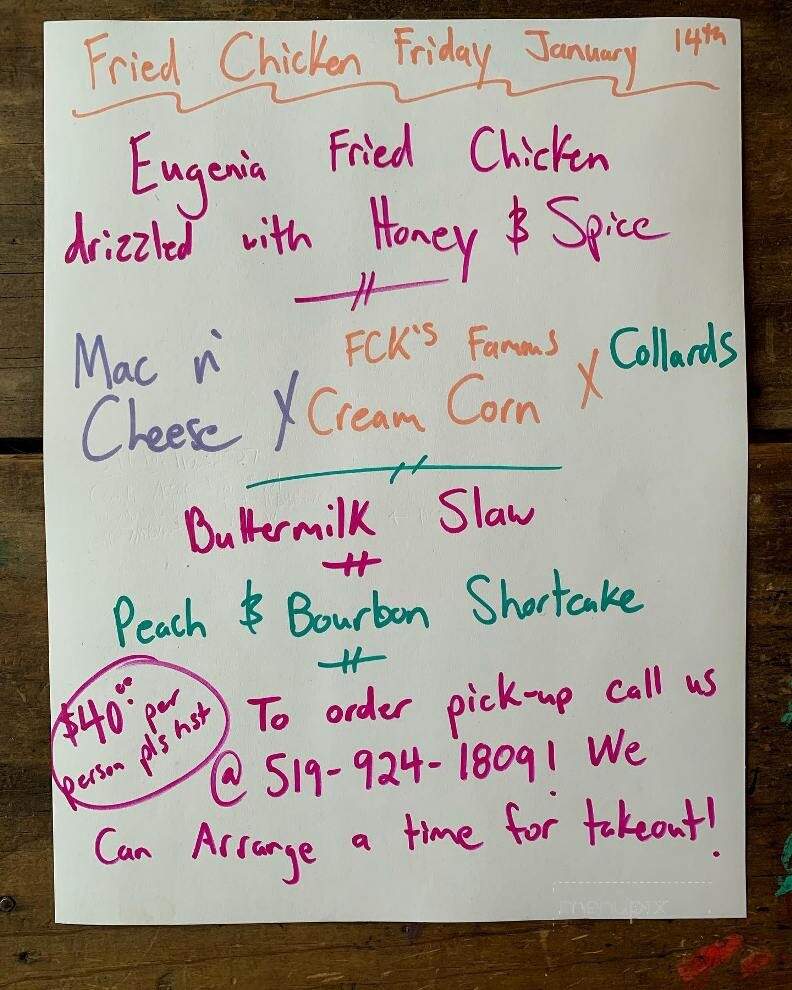 Fried Chicken Friday January 14th
Eugenia Fried Chicken
drizzled with Honey & Spice
Mac n' Cheese X FCK's Famous Cream Corn X Collards
Buttermilk Slaw
Peach & Bourbon Shortcake
$40.00 per person pl's hst
To order pick-up call us
@ 519-924-1809! We
Can Arrange a time for takeout!
menupix